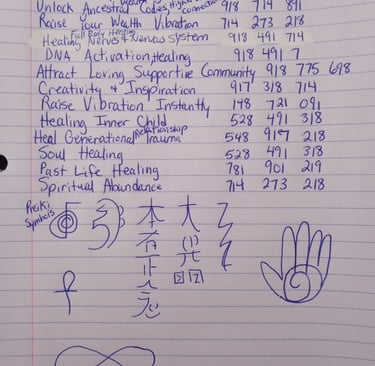 Unlock Ancestral Codes Higher connection 918 714 891
Raise Your Wealth Vibration 714 273 218
Full Body Healing
Healing Nerves & Nervous System 918 491 714
DNA Activation, Healing 918 491 7
Attract Loving Supportive Community 918 775 698
Creativity & Inspiration 917 318 714
Raise Vibration Instantly 148 721 091
Healing Inner Child 528 491 318
Relationship
Heal Generational Trauma 548 917 218
Soul Healing 528 491 318
Past Life Healing 781 901 219
Spiritual Abundance 714 273 218
Reiki
Symbols